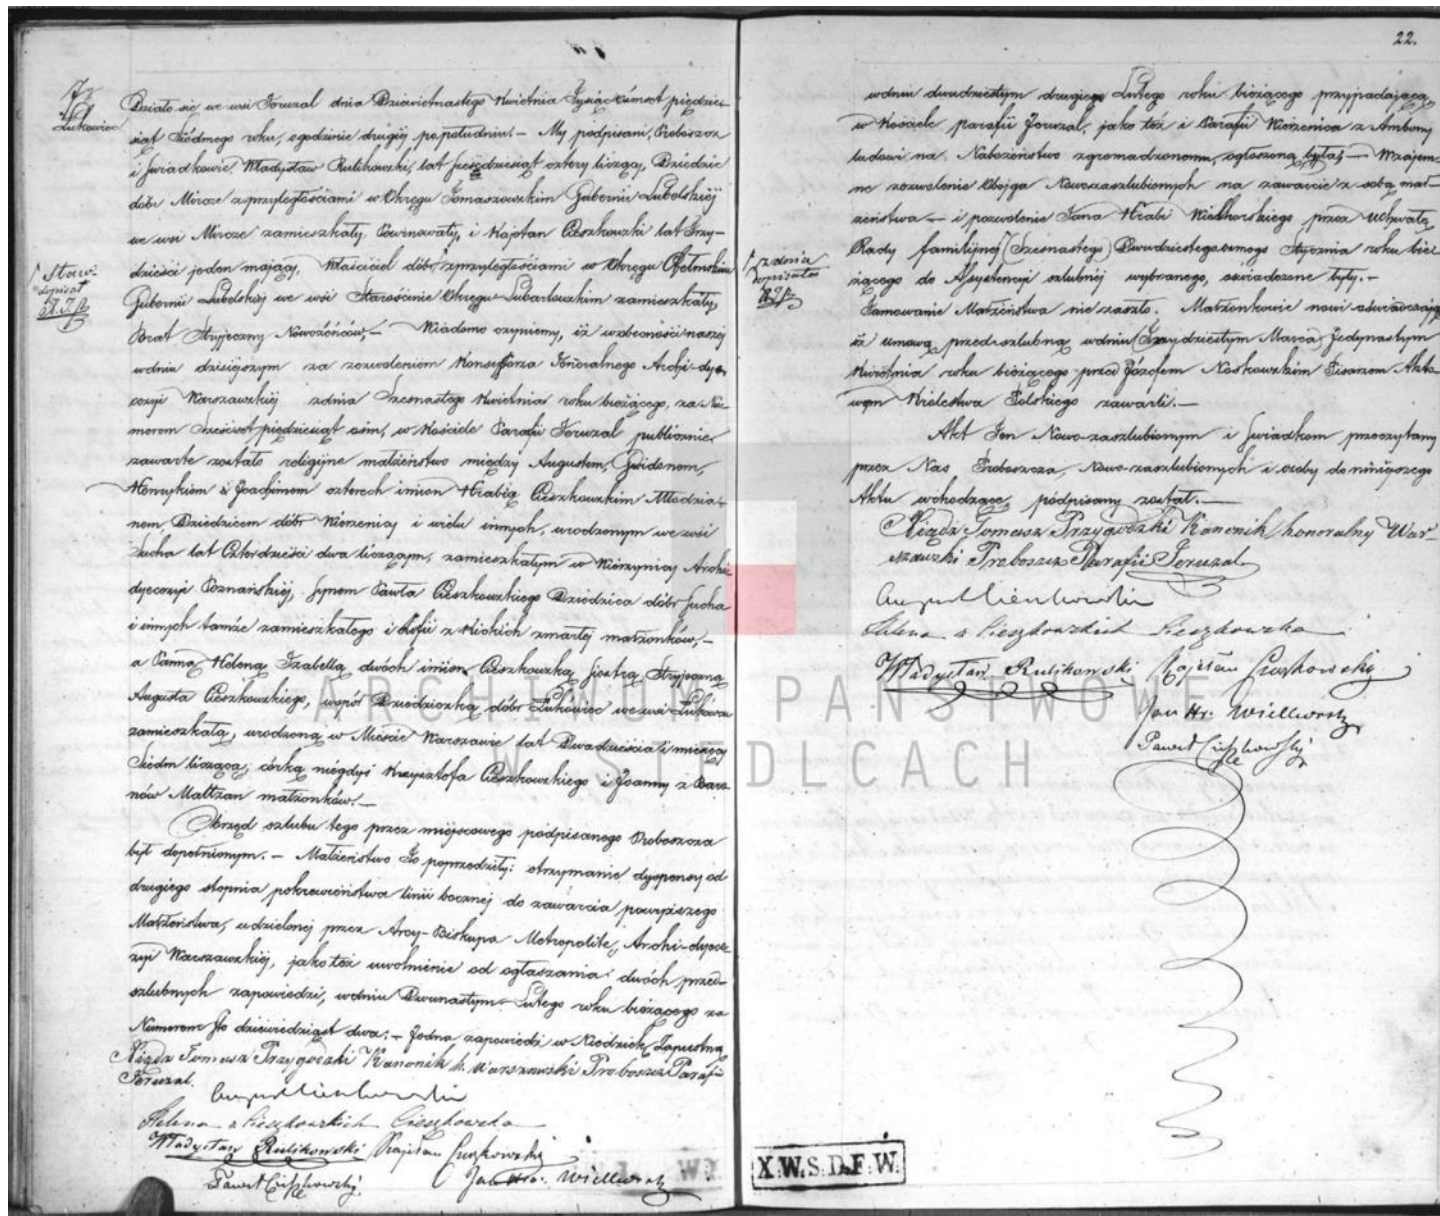 22.
7.
Łukowiec
Działo się we wsi Jeruzal dnia Dziewiętnastego Kwietnia Tysiąc ośmset piędzie-
siąt Siódmego roku, o godzinie drugiéj po południu. — My podpisani, Proboszcz
i Świadkowie Władysław Rulikowski, lat sześćdziesiąt cztery liczący, Dziedzic
dóbr Mircze z przyległościami w Okręgu Tomaszowskim Gubernii Lubelskiéj
we wsi Mircze zamieszkały Powinowaty, i Kajetan Cieszkowski lat Trzy-
dzieści jeden mający, Właściciel dóbr z przyległościami w Okręgu Chełmskim
Gubernii Lubelskiéj we wsi Starościnie Okręgu Lubartowskim zamieszkały,
Brat Stryjeczny Nowożeńców, — Wiadomo czyniemy, iż w obecności naszéj
w dniu dzisiejszym za zezwoleniem Konsystorza Jeneralnego Archi-dye-
cezyi Warszawskiéj z dnia Szesnastego Kwietnia roku bieżącego, za Nu-
merem Sześćset piędziesiąt ośm, w Kościele Parafii Jeruzal publicznie
zawarte zostało religijne małżeństwo między Augustem, Gwidonem,
Henrykiem i Joachimem czterech imion Hrabią Cieszkowskim Młodzia-
nem, Dziedzicem dóbr Wierzenicy i wielu innych, urodzonym we wsi
Sucha lat Czterdzieści dwa liczącym, zamieszkałym w Wierzenicy Archi-
dyecezyi Poznańskiéj, Synem Pawła Cieszkowskiego Dziedzica dóbr Sucha
i innych tamże zamieszkałego i Zofii z Kickich zmarłéj małżonków, —
a Panną Heleną Izabellą dwóch imion Cieszkowską siostrą Stryjeczną
Augusta Cieszkowskiego, współ Dziedziczką dóbr Łukowiec we wsi Łukowcu
zamieszkałą, urodzoną w Mieście Warszawie lat Dwadzieścia i miesięcy
Siedm liczącą, córką niegdyś Krzysztofa Cieszkowskiego i Joanny z Baro-
nów Maltzan małżonków. —
Obrzęd szlubu tego przez miejscowego podpisanego Proboszcza
był dopełnionym. — Małżeństwo to poprzedziły: otrzymanie dyspensy od
drugiego stopnia pokrewieństwa linii bocznéj do zawarcia powyższego
Małżeństwa, udzielonéj przez Arcy-Biskupa Metropolitę, Archi-dyece-
zyi Warszawskiéj, jako też uwolnienie od ogłaszania dwóch przed-
szlubnych zapowiedzi, w dniu Dwunastym Lutego roku bieżącego za
Numerem Sto dziewiędziąt dwa: — Jedna zapowiedź w Niedzielę Zapustną
Xiądz Tomasz Przygodzki Kanonik h. Warszawski Proboszcz Parafii
Jeruzal.
August Cieszkowski
Helena z Cieszkowskich Cieszkowska
Władysław Rulikowski Kajetan Cieszkowski
Paweł Cieszkowski Jan Hr. Wielhorski
Staw:
dopisał
w dniu dwudziestym drugiego Lutego roku bieżącego przypadającą
w Kościele parafii Jeruzal, jako też i Parafii Wierzenica z Ambony
ludowi na Nabożeństwo zgromadzonemu, ogłoszoną była; — Wzajem-
ne zezwolenie Obojga Nowozaszlubionych na zawarcie z sobą mał-
żeństwa — i pozwolenie Jana Hrabi Wielhorskiego przez Uchwałę
Rady familijnéj (Szesnastego) Dwudziestego ósmego Stycznia roku bie-
żącego do Asystencyi szlubnéj wybranego, oświadczone były. —
Tamowanie Małżeństwa nie zaszło. Małżonkowie nowi oświadczają
iż umowę przedszlubną w dniu (Trzydziestym Marca) Jedynastym
Kwietnia roku bieżącego przed Józefem Noskowskim Pisarzem Akto-
wym Królestwa Polskiego zawarli. —
Akt Ten Nowo-zaszlubionym i Świadkom przeczytany
przez Nas Proboszcza, Nowo-zaszlubionych i osoby do niniejszego
Aktu wchodzące, podpisany został. —
Xiądz Tomasz Przygodzki Kanonik honoralny War-
szawski Proboszcz Parafii Jeruzal
August Cieszkowski
Helena z Cieszkowskich Cieszkowska
Władysław Rulikowski Kajetan Cieszkowski
Jan Hr. Wielhorski
Paweł Cieszkowski
z dnia
dopisałem
ARCHIWUM PAŃSTWOWE
W SIEDLCACH
X.W.S.D.F.W.